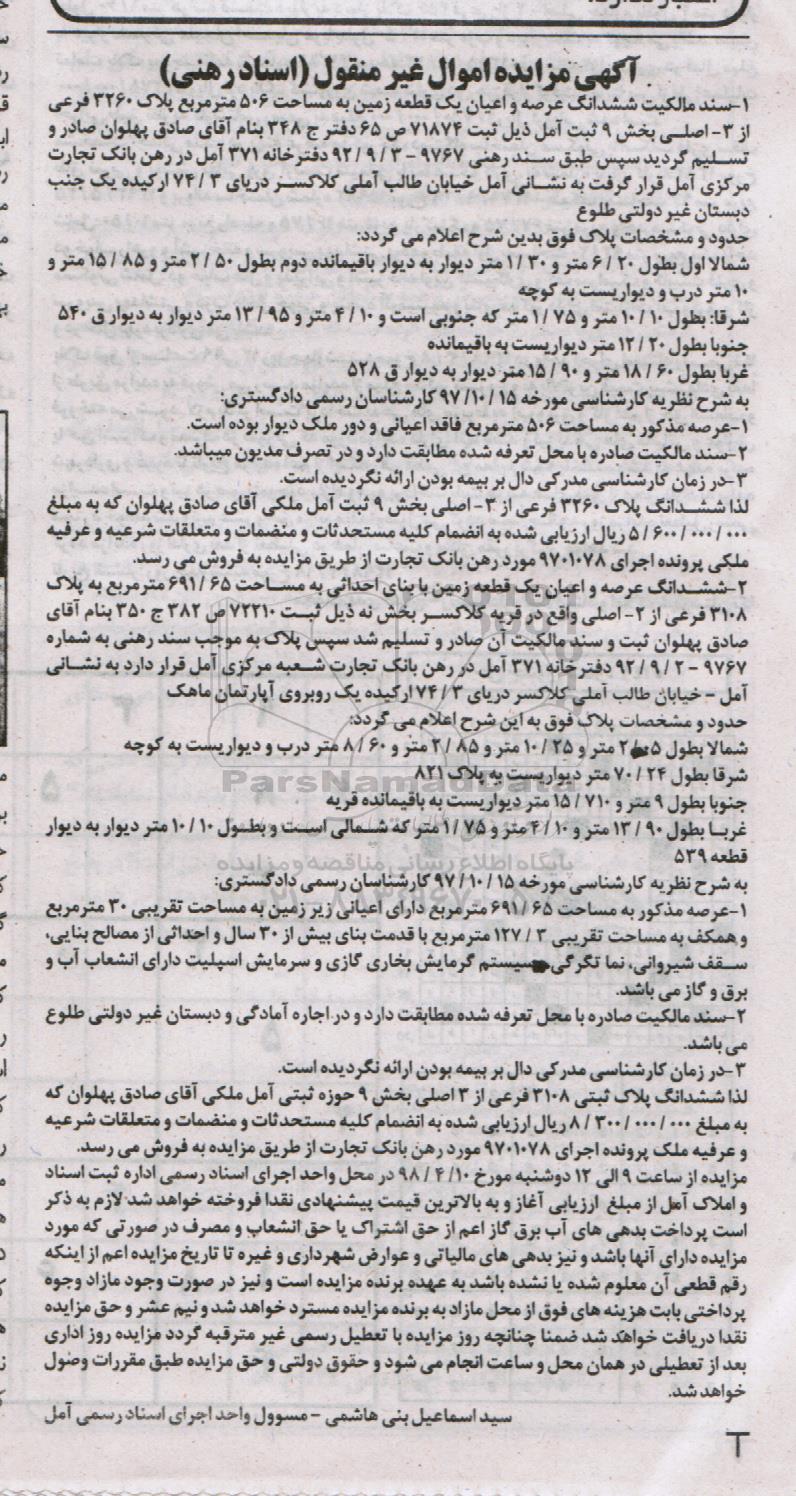 آگهی مزایده اموال غیر منقول (اسناد رهنی)
۱-سند مالکیت ششدانگ عرصه و اعیان یک قطعه زمین به مساحت ۵۰۶ مترمربع پلاک ۳۲۶۰ فرعی
از ۳- اصلـی بخش ۹ ثبت آمل ذیل ثبت ۷۱۸۷۴ ص ۶۵ دفتر ج ۳۴۸ بنام آقای صادق پهلوان صادر و
تسـلیم گردید سپس طبق سـند رهنی ۹۷۶۷ - ۳ / ۹ / ۹۲ دفترخانه ۳۷۱ آمل در رهن بانک تجارت
مرکزی آمل قرار گرفت به نشـانی آمل خیابان طالب آملی کلاکسـر دریای ۳ / ۷۴ ارکیده یک جنب
دبستان غیر دولتی طلوع
حدود و مشخصات پلاک فوق بدین شرح اعلام می گردد:
شمالا اول بطول ۲۰ / ۶ متر و ۳۰ / ۱ متر دیوار به دیوار باقیمانده دوم بطول ۵۰ / ۲ متر و ۸۵ / ۱۵ متر و
۱۰ متر درب و دیواریست به کوچه
شرقا: بطول ۱۰ / ۱۰ متر و ۷۵ / ۱ متر که جنوبی است و ۱۰ / ۴ متر و ۹۵ / ۱۳ متر دیوار به دیوار ق ۵۴۰
جنوبا بطول ۲۰ / ۱۲ متر دیواریست به باقیمانده
غربا بطول ۶۰ / ۱۸ متر و ۹۰ / ۱۵ متر دیوار به دیوار ق ۵۲۸
به شرح نظریه کارشناسی مورخه ۱۵ / ۱۰ / ۹۷ کارشناسان رسمی دادگستری:
۱-عرصه مذکور به مساحت ۵۰۶ مترمربع فاقد اعیانی و دور ملک دیوار بوده است.
۲-سند مالکیت صادره با محل تعرفه شده مطابقت دارد و در تصرف مدیون میباشد.
۳-در زمان کارشناسی مدرکی دال بر بیمه بودن ارائه نگردیده است.
لذا ششـدانگ پلاک ۳۲۶۰ فرعی از ۳- اصلی بخش ۹ ثبت آمل ملکی آقای صادق پهلوان که به مبلغ
۰۰۰ / ۰۰۰ / ۶۰۰ / ۵ ریال ارزیابی شده به انضمام کلیه مستحدثات و منضمات و متعلقات شرعیه و عرفیه
ملکی پرونده اجرای ۹۷۰۱۰۷۸ مورد رهن بانک تجارت از طریق مزایده به فروش می رسد.
۲-ششـدانگ عرصه و اعیان یک قطعه زمین با بنای احداثی به مسـاحت ۶۵ / ۶۹۱ مترمربع به پلاک
۳۱۰۸ فرعی از ۲- اصلی واقع در قریه کلاکسـر بخش نه ذیل ثبـت ۷۲۲۱۰ ص ۳۸۲ ج ۳۵۰ بنام آقای
صادق پهلوان ثبت و سند مالکیت آن صادر و تسلیم شد سپس پلاک به موجب سند رهنی به شماره
۹۷۶۷ - ۲ / ۹ / ۹۲ دفترخانه ۳۷۱ آمل در رهن بانک تجارت شـعبه مرکزی آمل قرار دارد به نشـانی
آمل - خیابان طالب آملی کلاکسر دریای ۳ / ۷۴ ارکیده یک روبروی آپارتمان ماهک
حدود و مشخصات پلاک فوق به این شرح اعلام می گردد:
شمالا بطول ۲ متر و ۲۵ / ۱۰ متر و ۸۵ / ۲ متر و ۶۰ / ۸ متر درب و دیواریست به کوچه
شرقا بطول ۲۴ / ۷۰ متر دیواریست به پلاک ۸۲۱
ParsNamadData
جنوبا بطول ۹ متر و ۷۱۰ / ۱۵ متر دیواریست به باقیمانده قریه
غربـا بطول ۹۰ / ۱۳ متر و ۱۰ / ۴ متر و ۷۵ / ۱ متر که شـمالی اسـت و بطـول ۱۰ / ۱۰ متر دیوار به دیوار
قطعه ۵۳۹
پایگاه اطلاع رسانی مناقصه و مزایده
به شرح نظریه کارشناسی مورخه ۱۵ / ۱۰ / ۹۷ کارشناسان رسمی دادگستری:
۱-عرصه مذکور به مساحت ۶۵ / ۶۹۱ مترمربع دارای اعیانی زیر زمین به مساحت تقریبی ۳۰ مترمربع
و همکف به مساحت تقریبی ۳ / ۱۲۷ مترمربع با قدمت بنای بیش از ۳۰ سال و احداثی از مصالح بنایی،
سـقف شیروانی، نما تگرگی سیستم گرمایش بخاری گازی و سرمایش اسپلیت دارای انشعاب آب و
برق و گاز می باشد.
۲-سند مالکیت صادره با محل تعرفه شده مطابقت دارد و در اجاره آمادگی و دبستان غیر دولتی طلوع
می باشد.
۳-در زمان کارشناسی مدرکی دال بر بیمه بودن ارائه نگردیده است.
لذا ششدانگ پلاک ثبتی ۳۱۰۸ فرعی از ۳ اصلی بخش ۹ حوزه ثبتی آمل ملکی آقای صادق پهلوان که
به مبلغ ۰۰۰ / ۰۰۰ / ۳۰۰ / ۸ ریال ارزیابی شده به انضمام کلیه مستحدثات و منضمات و متعلقات شرعیه
و عرفیه ملک پرونده اجرای ۹۷۰۱۰۷۸ مورد رهن بانک تجارت از طریق مزایده به فروش می رسد.
مزایده از ساعت ۹ الی ۱۲ دوشنبه مورخ ۱۰/ ۴ / ۹۸ در محل واحد اجرای اسناد رسمی اداره ثبت اسناد
و املاک آمل از مبلغ ارزیابی آغاز و به بالاترین قیمت پیشنهادی نقدا فروخته خواهد شد لازم به ذکر
است پرداخت بدهی های آب برق گاز اعم از حق اشتراک یا حق انشعاب و مصرف در صورتی که مورد
مزایده دارای آنها باشد و نیز بدهی های مالیاتی و عوارض شهرداری و غیره تا تاریخ مزایده اعم از اینکه
رقم قطعی آن معلوم شده یا نشده باشد به عهده برنده مزایده است و نیز در صورت وجود مازاد وجوه
پرداختی بابت هزینه های فوق از محل مازاد به برنده مزایده مسترد خواهد شد و نیم عشر و حق مزایده
نقدا دریافت خواهد شد ضمنا چنانچه روز مزایده با تعطیل رسمی غیر مترقبه گردد مزایده روز اداری
بعد از تعطیلی در همان محل و ساعت انجام می شود و حقوق دولتی و حق مزایده طبق مقررات وصول
خواهد شد.
سید اسماعیل بنی هاشمی - مسوول واحد اجرای اسناد رسمی آمل
T